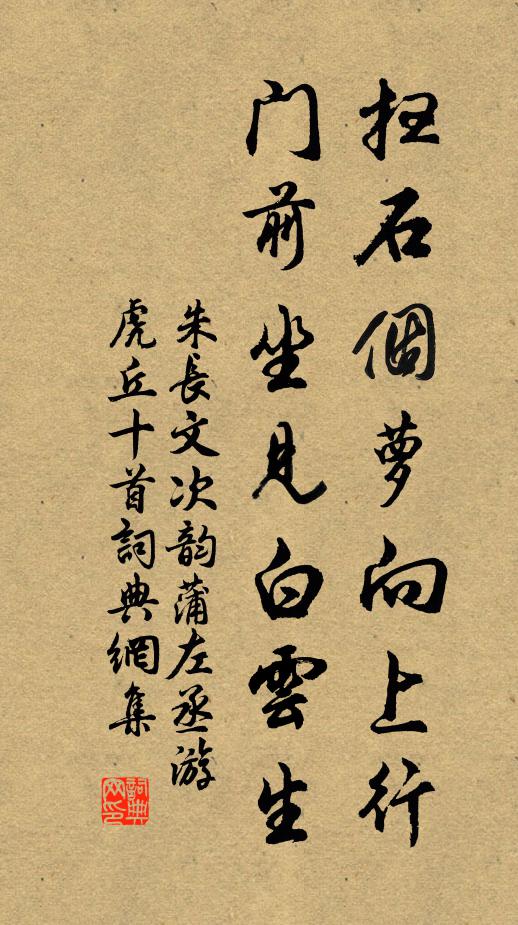 扭石個萝向上行
门前坐見白雲生
朱長文次韵蒲左丞游
虎丘十首詞典網集
詞典
网印